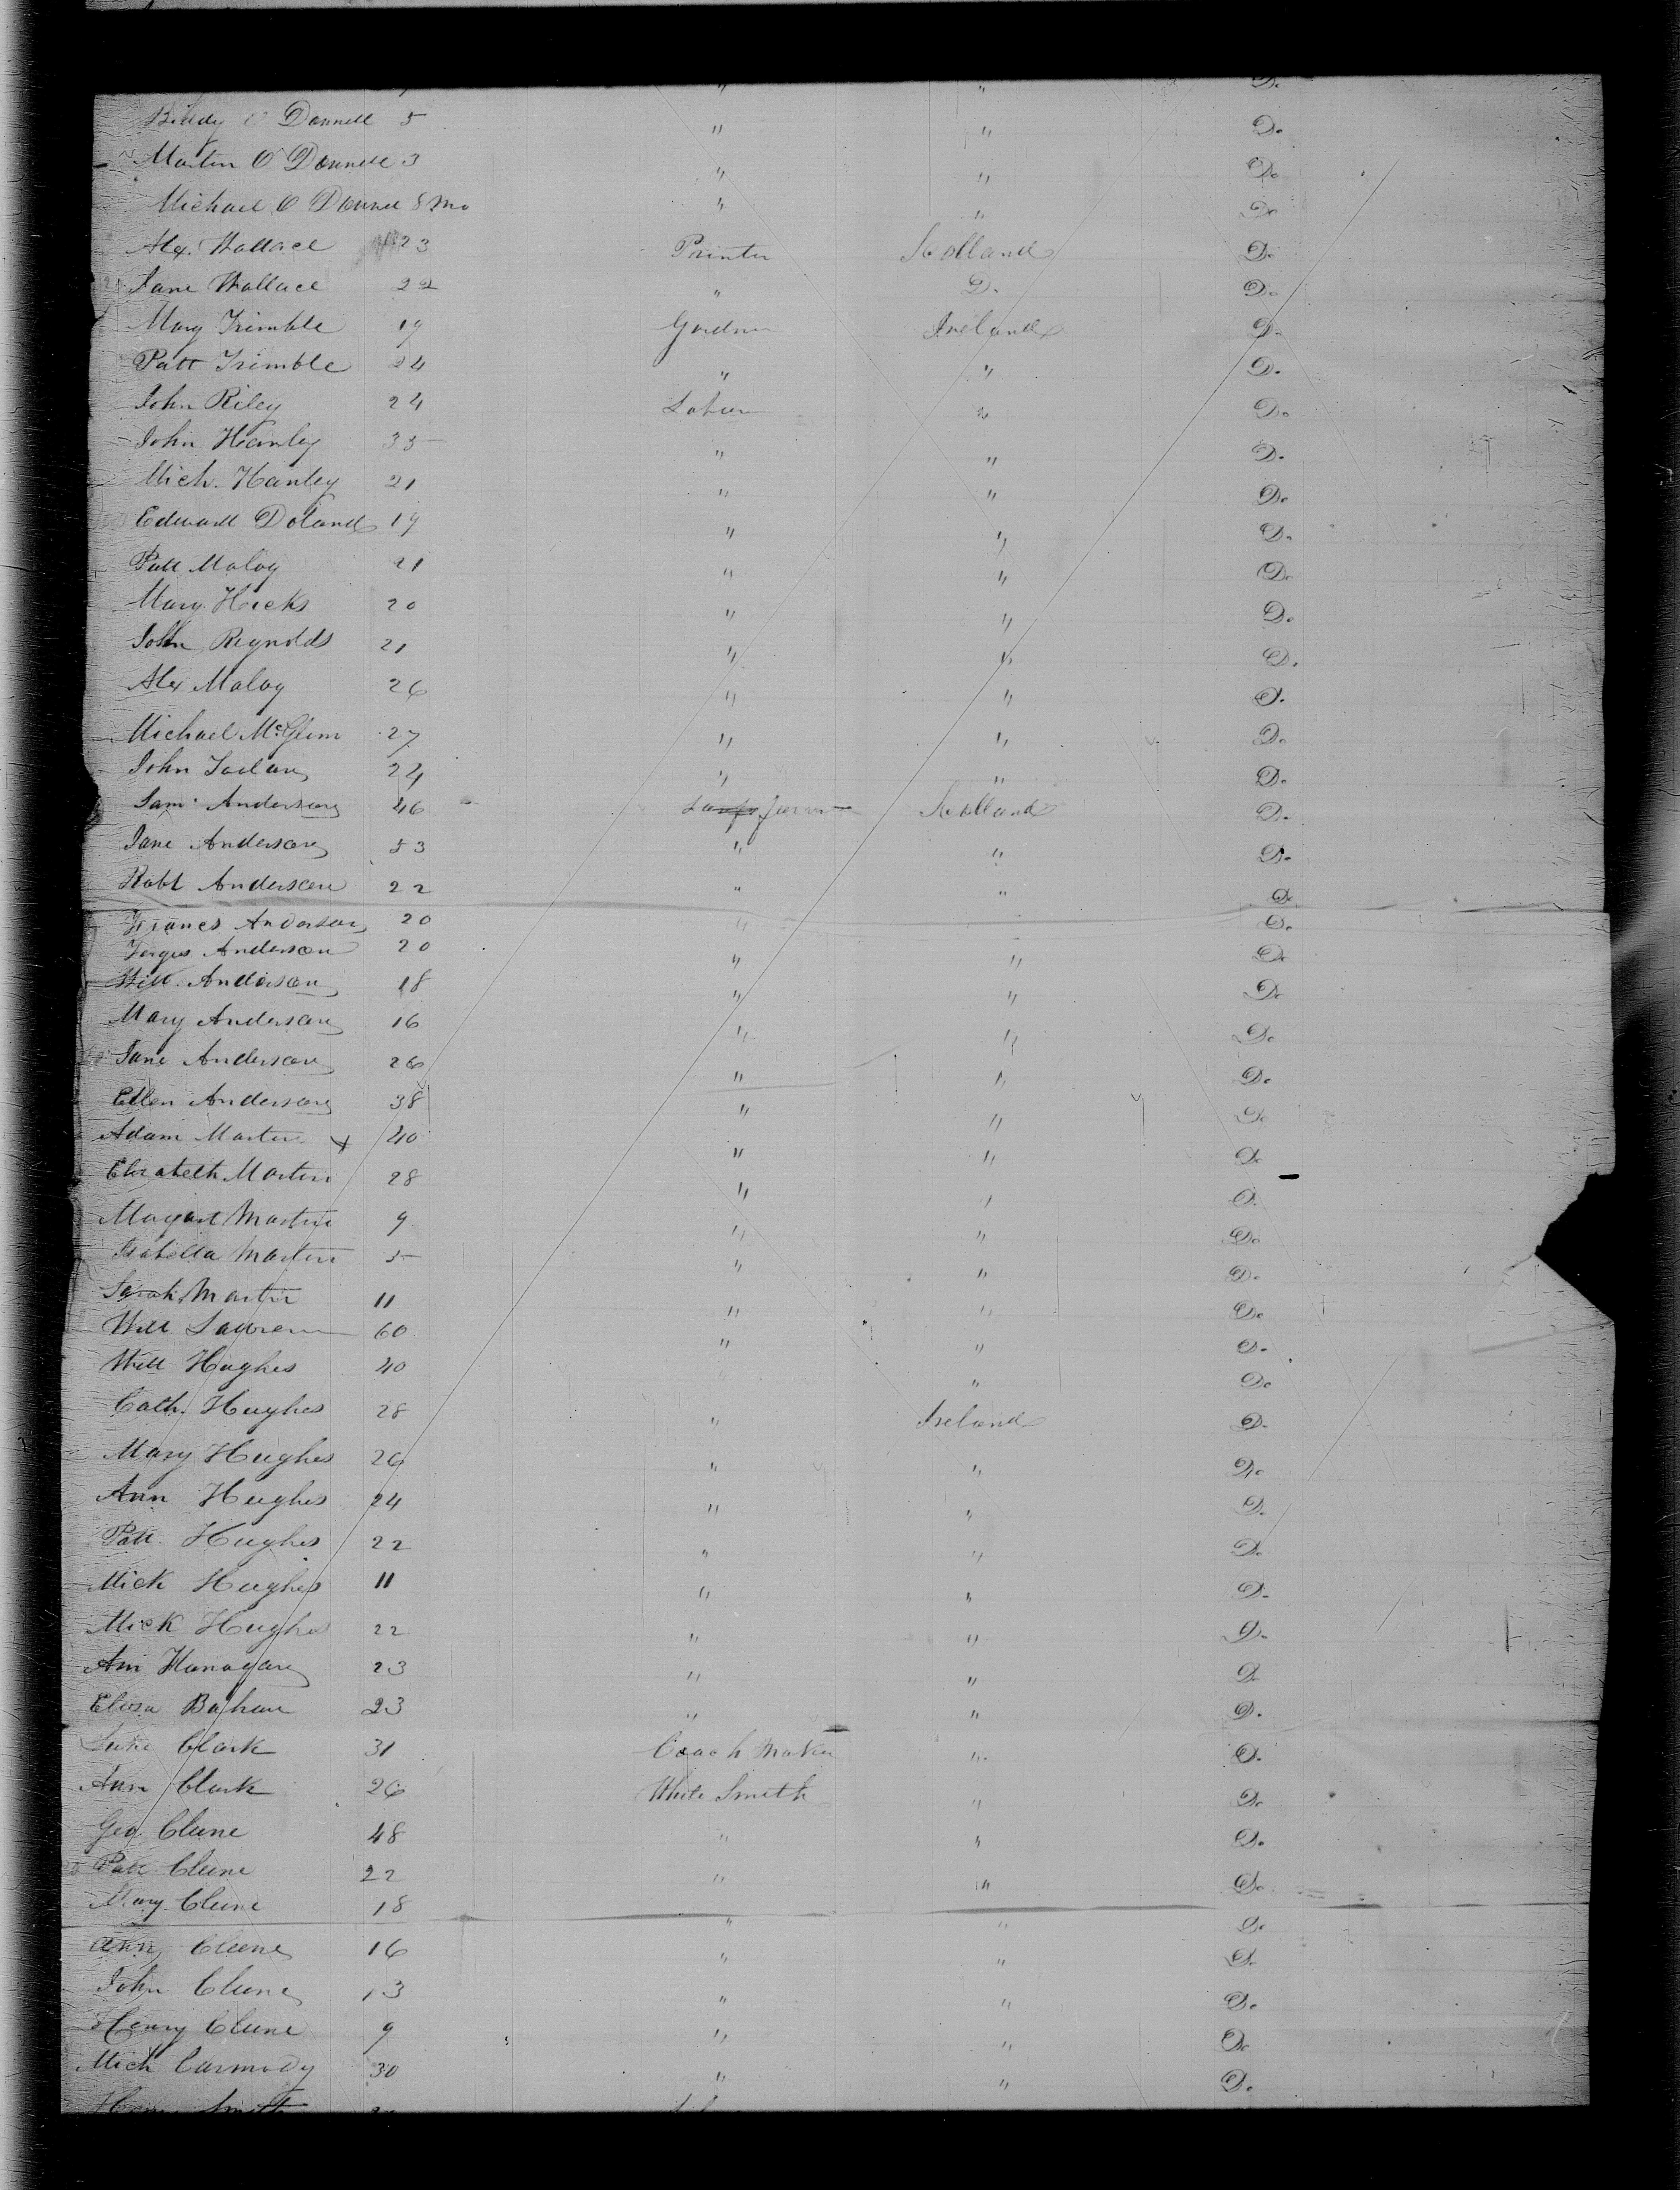 " " Do
Biddy O Donnell 5 " " Do
Martin O Donnell 3 " " Do
Michael O Donnell 8 Mo " " Do
Alex. Wallace 23 Printer Scotland Do
Jane Wallace 22 " Do Do
Mary Trimble 19 Gardner Ireland Do
Patt Trimble 24 " " Do
John Riley 24 Labur " Do
John Hanley 35 " " Do
Mich. Hanley 21 " " Do
Edward Doland 19 " " Do
Patt Maloy 21 " " Do
Mary Hicks 20 " " Do
John Reynolds 21 " " Do
Alex Maloy 26 " " Do
Michael McGlinn 27 " " Do
John 24 " " Do
Saml Anderson 46 farmer Scotland Do
Jane Anderson 53 " " Do
Robt Anderson 22 " " Do
Frances Anderson 20 " Do
Fergus Anderson 20 " " Do
Will Anderson 18 " " Do
Mary Anderson 16 " " Do
Jane Anderson 26 " " Do
Ellen Anderson 38 " " Do
Adam Martin 40 " " Do
Elizabeth Martin 28 " " Do
Magart Martin 9 " " Do
Isabella Martin 5 " " Do
Sarah Martin 11 " " Do
Will Lawren 60 " " Do
Will Hughes 40 " Do
Cath. Hughes 28 " Ireland Do
Mary Hughes 26 " " Do
Ann Hughes 24 " " Do
Patt. Hughes 22 " " Do
Mick Hughes 11 " " Do
Mick Hughes 22 " " Do
Ann Flanagan 23 " " Do
Elisa 23 " " Do
Luke Clark 31 Coach Maker " Do
Ann Clark 26 White Smith " Do
Geo. Clune 48 " " Do
Patt Clune 22 " " Do
Mary Clune 18 " " Do
Ann Clune 16 " " Do
John Clune 13 " " Do
Henry Clune 9 " " Do
Mich Carmody 30 " " Do
Smith